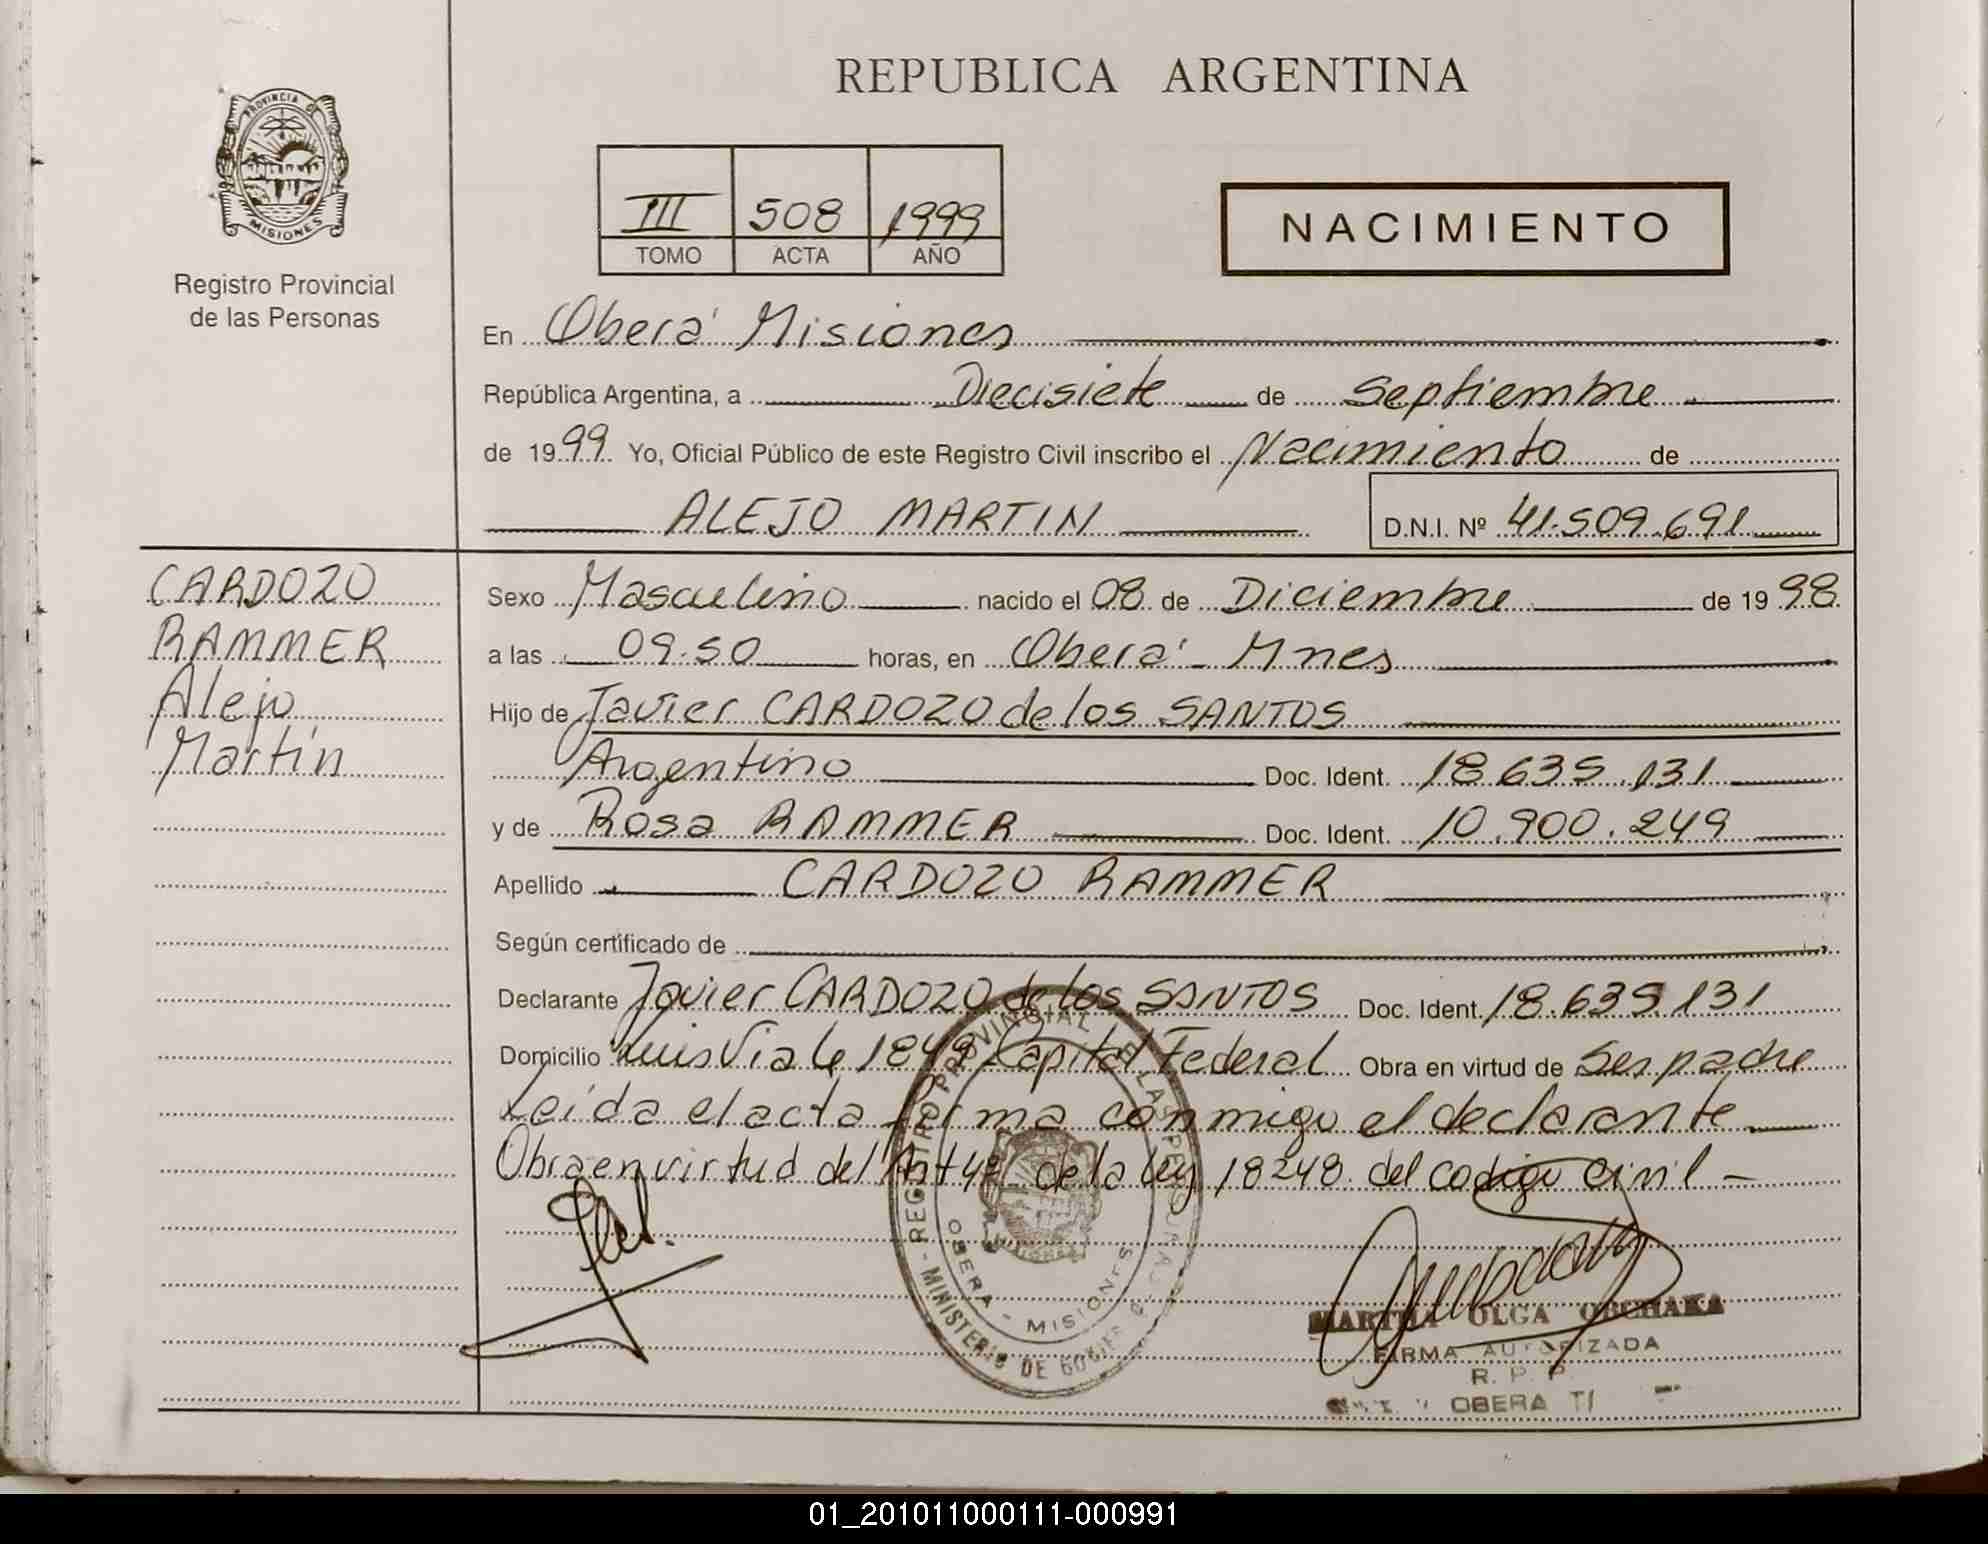 REPUBLICA ARGENTINA
PROVINCIA DE
MISIONES
Registro Provincial
de las Personas
III 508 1999
TOMO ACTA AÑO
NACIMIENTO
En Oberá Misiones
República Argentina, a Diecisiete de Septiembre
de 1999 Yo, Oficial Público de este Registro Civil inscribo el Nacimiento de
ALEJO MARTIN D.N.I. Nº 41.509.691
CARDOZO
RAMMER
Alejo
Martín
Sexo Masculino nacido el 08 de Diciembre de 1998
a las 09.50 horas, en Oberá - Mnes
Hijo de Javier CARDOZO de los SANTOS
Argentino Doc. Ident. 18.635.131
y de Rosa RAMMER Doc. Ident. 10.900.249
Apellido CARDOZO RAMMER
Según certificado de
Declarante Javier CARDOZO de los SANTOS Doc. Ident. 18.635.131
Domicilio Luis Viale 1849 Capital Federal Obra en virtud de Ser padre
Leída el acta firma conmigo el declarante
Obra en virtud del Art 4º de la ley 18248 del codigo civil -
REGISTRO PROVINCIAL DE LAS PERSONAS
MINISTERIO DE GOBIERNO
OBERA - MISIONES
MARTHA OLGA
FIRMA AUTORIZADA
R. P. P.
OBERA
01_201011000111-000991